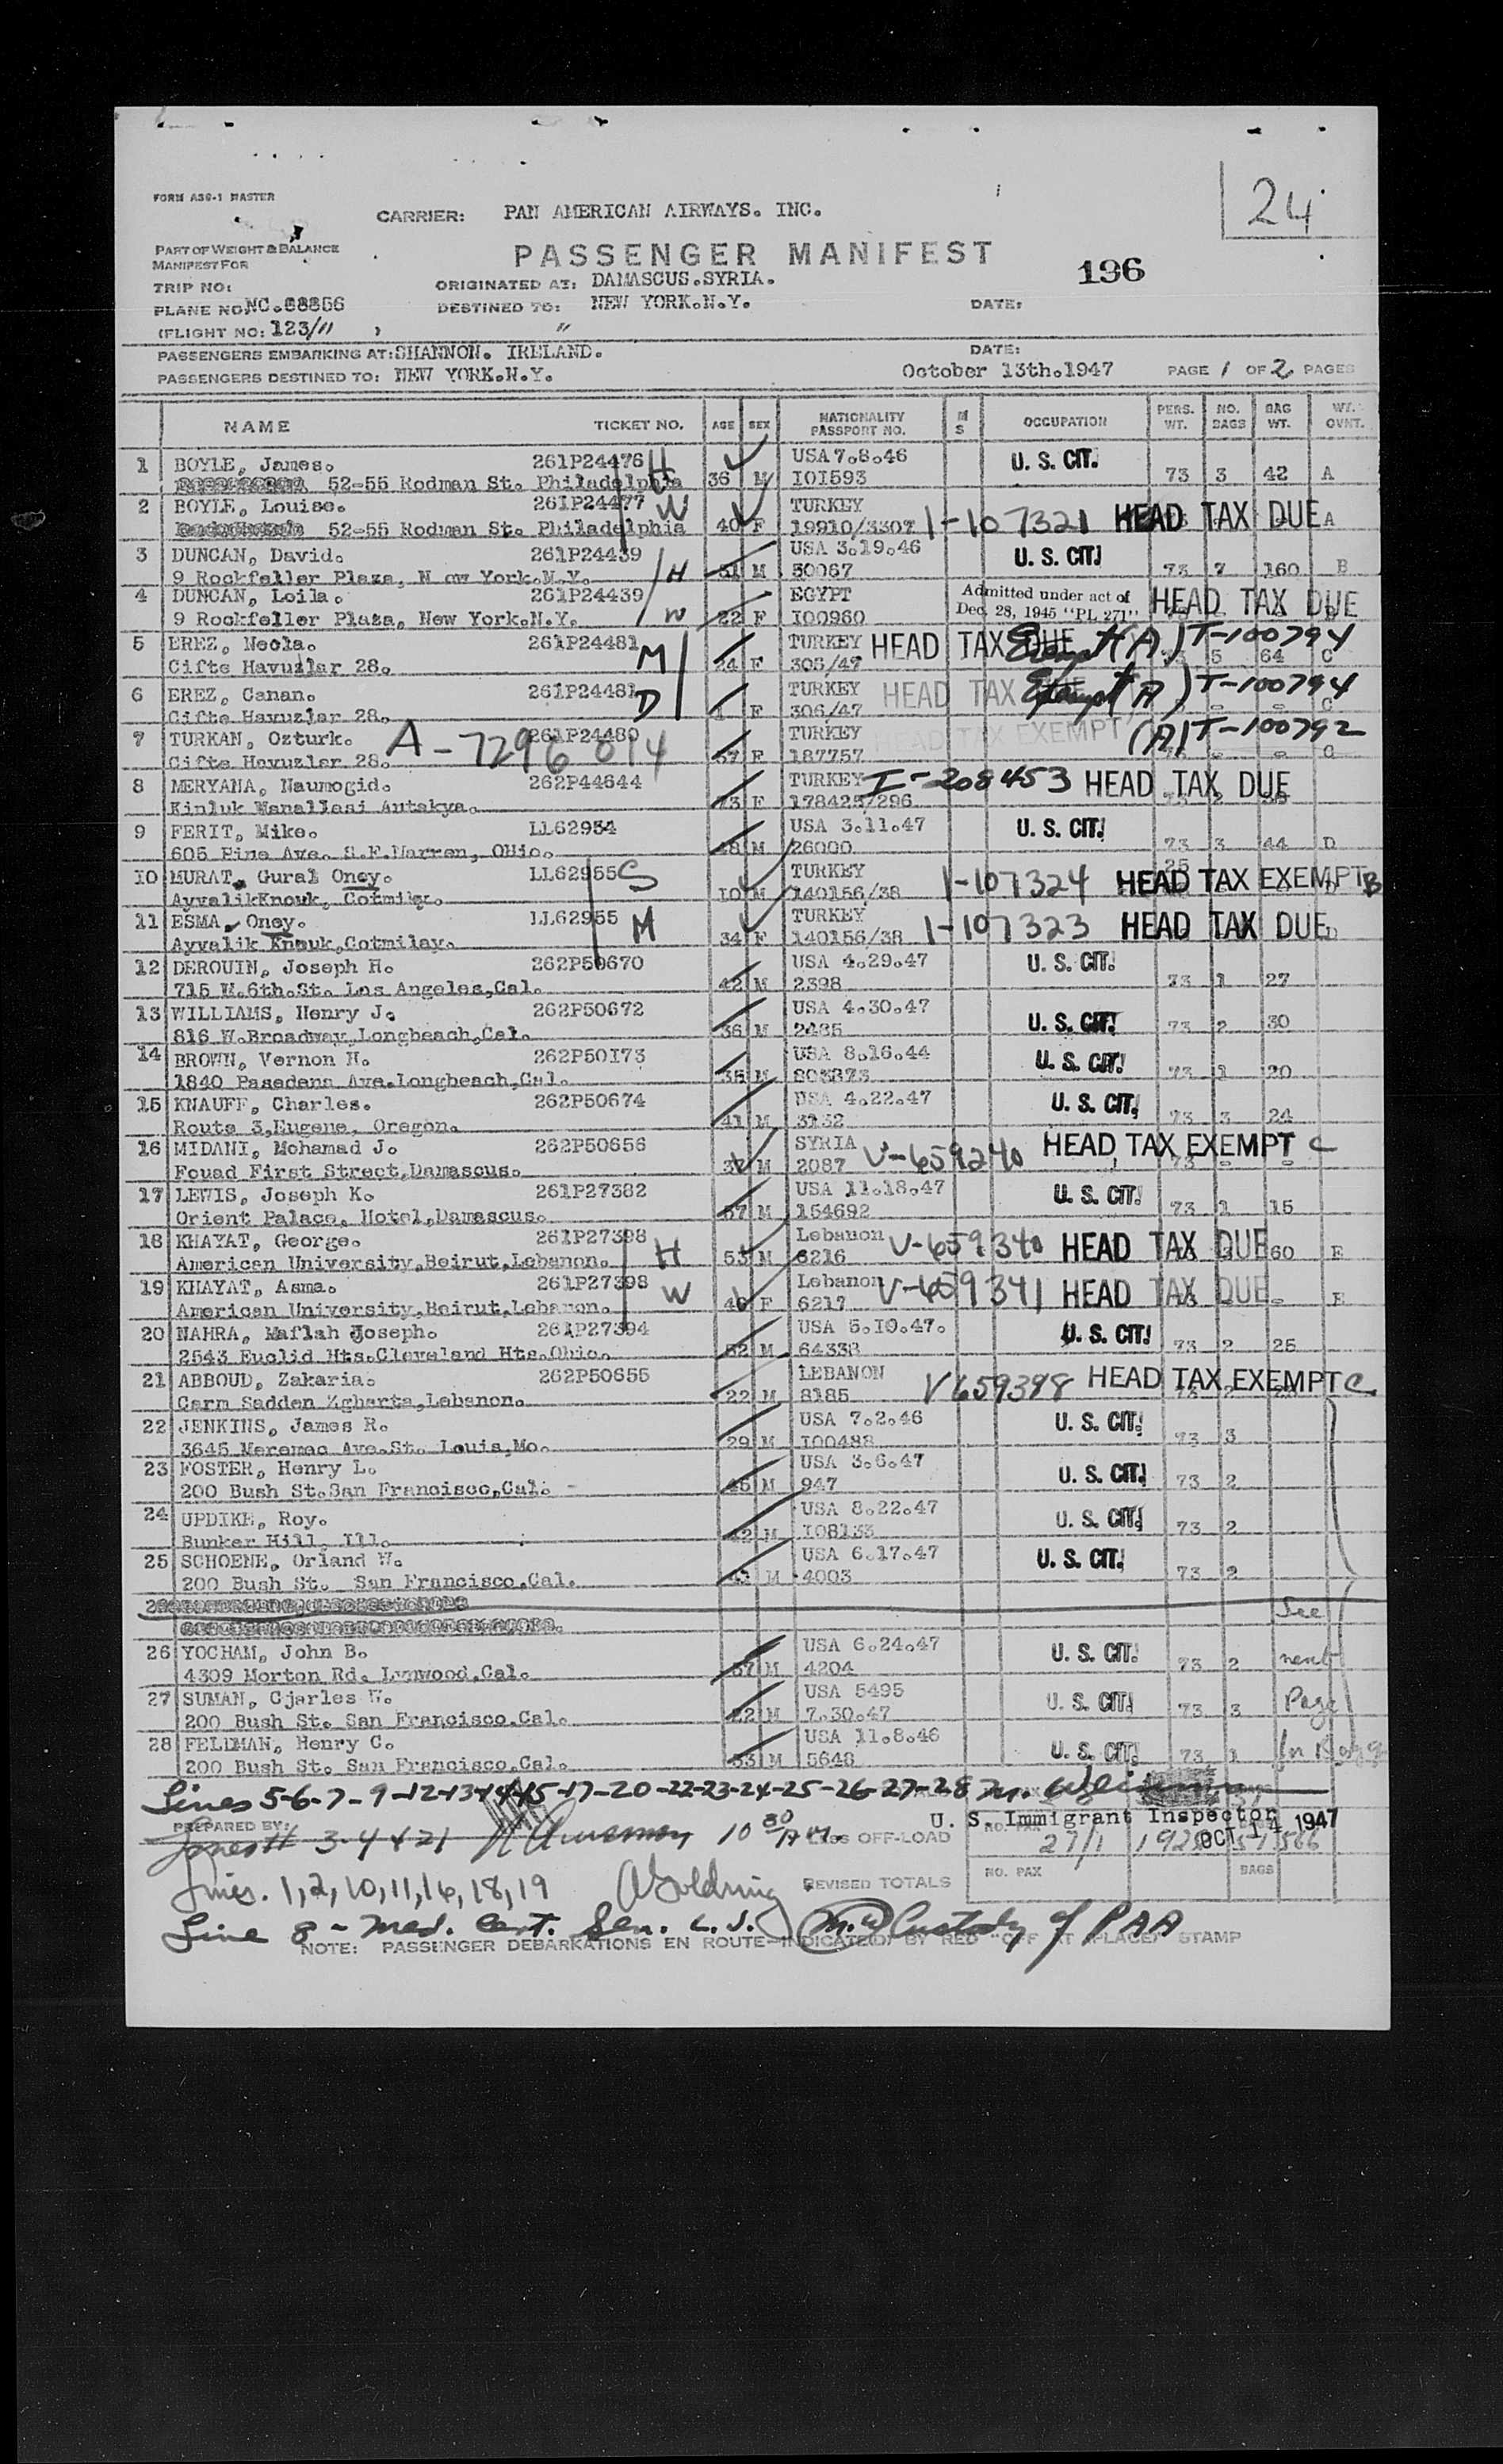 24
FORM A36-1 MASTER
CARRIER: PAN AMERICAN AIRWAYS. INC.
PART OF WEIGHT & BALANCE
MANIFEST FOR
PASSENGER MANIFEST
196
TRIP NO:
ORIGINATED AT: DAMASCUS.SYRIA.
PLANE NO: NC.88856
DESTINED TO: NEW YORK.N.Y.
DATE:
(FLIGHT NO: 123/11 ) "
PASSENGERS EMBARKING AT: SHANNON. IRELAND.
DATE:
PASSENGERS DESTINED TO: NEW YORK.N.Y.
October 13th.1947 PAGE 1 OF 2 PAGES
NAME TICKET NO. AGE SEX NATIONALITY PASSPORT NO. M S OCCUPATION PERS. WT. NO. BAGS BAG WT. WT. OVNT.
1 BOYLE, James. 261P24476 H USA 7.8.46 U. S. CIT.
52-55 Rodman St. Philadelphia 36 M I0I593 73 3 42 A
2 BOYLE, Louise. 261P24477 W TURKEY
52-55 Rodman St. Philadelphia 40 F 19910/3307 1-107321 HEAD TAX DUE A
3 DUNCAN, David. 261P24439 USA 3.19.46 U. S. CIT.
9 Rockfeller Plaza, N ew York.N.Y. H 31 M 50067 73 7 160 B
4 DUNCAN, Leila. 261P24439 EGYPT Admitted under act of HEAD TAX DUE
9 Rockfeller Plaza, New York.N.Y. W 22 F I00960 Dec. 28, 1945 "PL 271"
5 EREZ, Necla. 261P24481 M TURKEY HEAD TAX DUE Exempt (A) T-100794
Cifte Havuzlar 28. 24 F 305/47 5 64 C
6 EREZ, Canan. 261P24481 D TURKEY HEAD TAX Exempt (A) T-100794
Cifte Havuzlar 28. 1 F 306/47 - - C
7 TURKAN, Ozturk. 261P24480 A-7296014 TURKEY HEAD TAX EXEMPT (A) T-100792
Cifte Havuzlar 28. 57 F 187757 - - C
8 MERYANA, Naumogid. 262P44644 TURKEY I-208453 HEAD TAX DUE
Kinluk Manallasi Autakya. 73 F 178425/296
9 FERIT, Mike. LL62954 USA 3.11.47 U. S. CIT.
605 Pine Ave. S.E.Warren, OHio. 48 M 26000 73 3 44 D
10 MURAT, Gural Oney. LL62955 S TURKEY 1-107324 HEAD TAX EXEMPT B
AyvalikKnouk, Cotmiley. 10 M 140156/38
11 ESMA, Oney. LL62955 M TURKEY 1-107323 HEAD TAX DUE D
Ayvalik Knouk,Cotmilay. 34 F 140156/38
12 DEROUIN, Joseph H. 262P50670 USA 4.29.47 U. S. CIT.
715 W.6th.St. Los Angeles,Cal. 42 M 2398 73 1 27
13 WILLIAMS, Henry J. 262P50672 USA 4.30.47
816 W.Broadway,Longbeach,Cal. 36 M 2485 U. S. CIT. 73 2 30
14 BROWN, Vernon H. 262P50173 USA 8.16.44 U. S. CIT.
1840 Pasedena Ave.Longbeach,Cal. 35 M 803873 73 1 20
15 KNAUFF, Charles. 262P50674 USA 4.22.47 U. S. CIT.
Route 3,Eugene, Oregon. 41 M 3132 73 3 24
16 MIDANI, Mohamad J. 262P50656 SYRIA V-659240 HEAD TAX EXEMPT C
Fouad First Street,Damascus. M 2087 73 - -
17 LEWIS, Joseph K. 261P27382 USA 11.18.47 U. S. CIT.
Orient Palace, Hotel,Damascus. 57 M 154692 73 1 15
18 KHAYAT, George. 261P27398 H Lebanon V-659340 HEAD TAX DUE
American University,Beirut,Lebanon. 53 M 6216 60 E
19 KHAYAT, Asma. 261P27398 W Lebanon V-659341 HEAD TAX DUE
American University,Beirut,Lebanon. 46 F 6217 - E
20 NAHRA, Maflah Joseph. 261P27394 USA 5.10.47. U. S. CIT.
2543 Euclid Hts.Cleveland Hts.Ohio. 52 M 64338 73 2 25
21 ABBOUD, Zakaria. 262P50655 LEBANON V659398 HEAD TAX EXEMPT C
Carm Sadden Zgharta,Lebanon. 22 M 8185
22 JENKINS, James R. USA 7.2.46 U. S. CIT.
3645 Meremac Ave.St. Louis,Mo. 29 M I00488 73 3
23 FOSTER, Henry L. USA 3.6.47 U. S. CIT.
200 Bush St.San Francisco,Cal. 45 M 947 73 2
24 UPDIKE, Roy. USA 8.22.47 U. S. CIT.
Bunker Hill, Ill. 42 M I08133 73 2
25 SCHOENE, Orland W. USA 6.17.47 U. S. CIT.
200 Bush St. San Francisco.Cal. 43 M 4003 73 2
See
26 YOCHAM, John B. USA 6.24.47 U. S. CIT.
4309 Morton Rd. Lynwood.Cal. 57 M 4204 73 2 next
27 SUMAN, Cjarles W. USA 5495 U. S. CIT.
200 Bush St. San Francisco.Cal. 22 M 7.30.47 73 3 Page
28 FELLMAN, Henry C. USA 11.8.46
200 Bush St. San Francisco.Cal. 33 M 5648 U. S. CIT. 73 1
Lines 5-6-7-9-12-13-14-15-17-20-22-23-24-25-26-27-28
PREPARED BY: U. S. Immigrant Inspector
3-4 & 21 10 30 AM. OFF-LOAD NO. PAX 27/1 OCT 14 1947
Lines. 1,2,10,11,16,18,19 A Goldring REVISED TOTALS NO. PAX BAGS
Line 8 - med. Cert. Sen. L. I. Custody of PAA
NOTE: PASSENGER DEBARKATIONS EN ROUTE INDICATED BY RED "OFF AT (PLACE)" STAMP